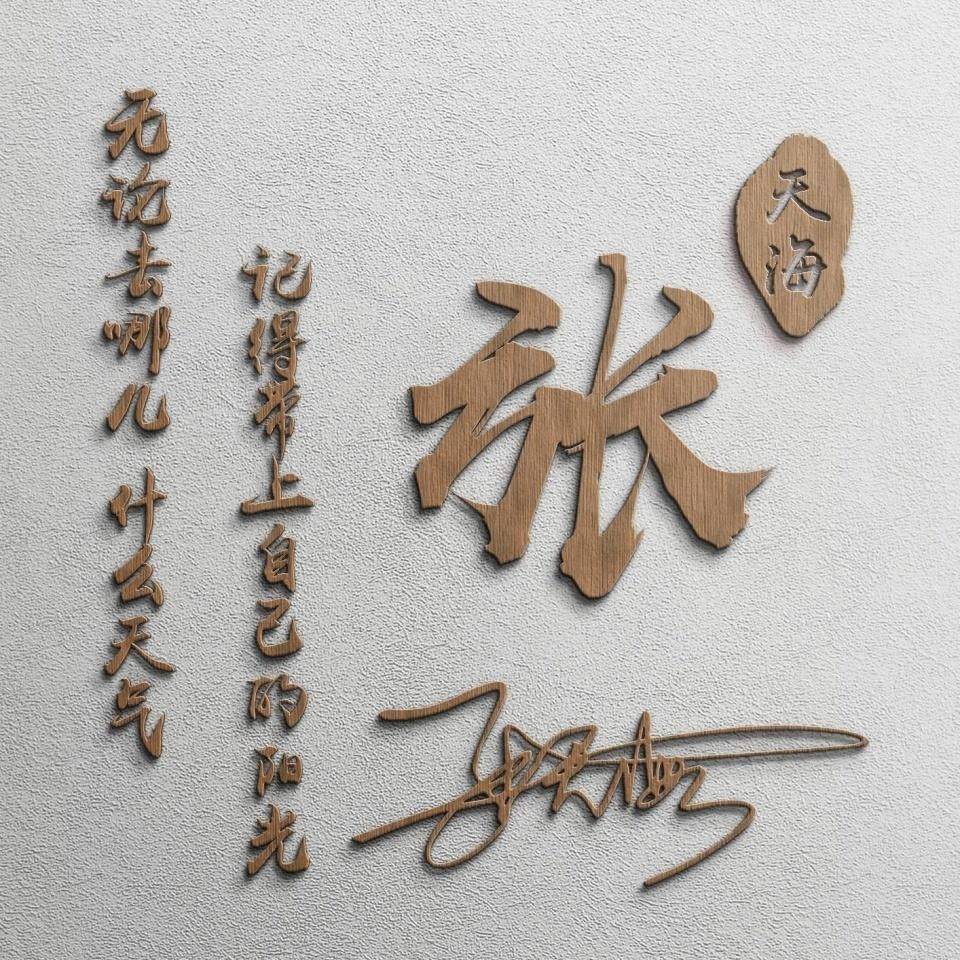 无论去哪儿 什么天气
记得带上自己的阳光
张
天海
张天海